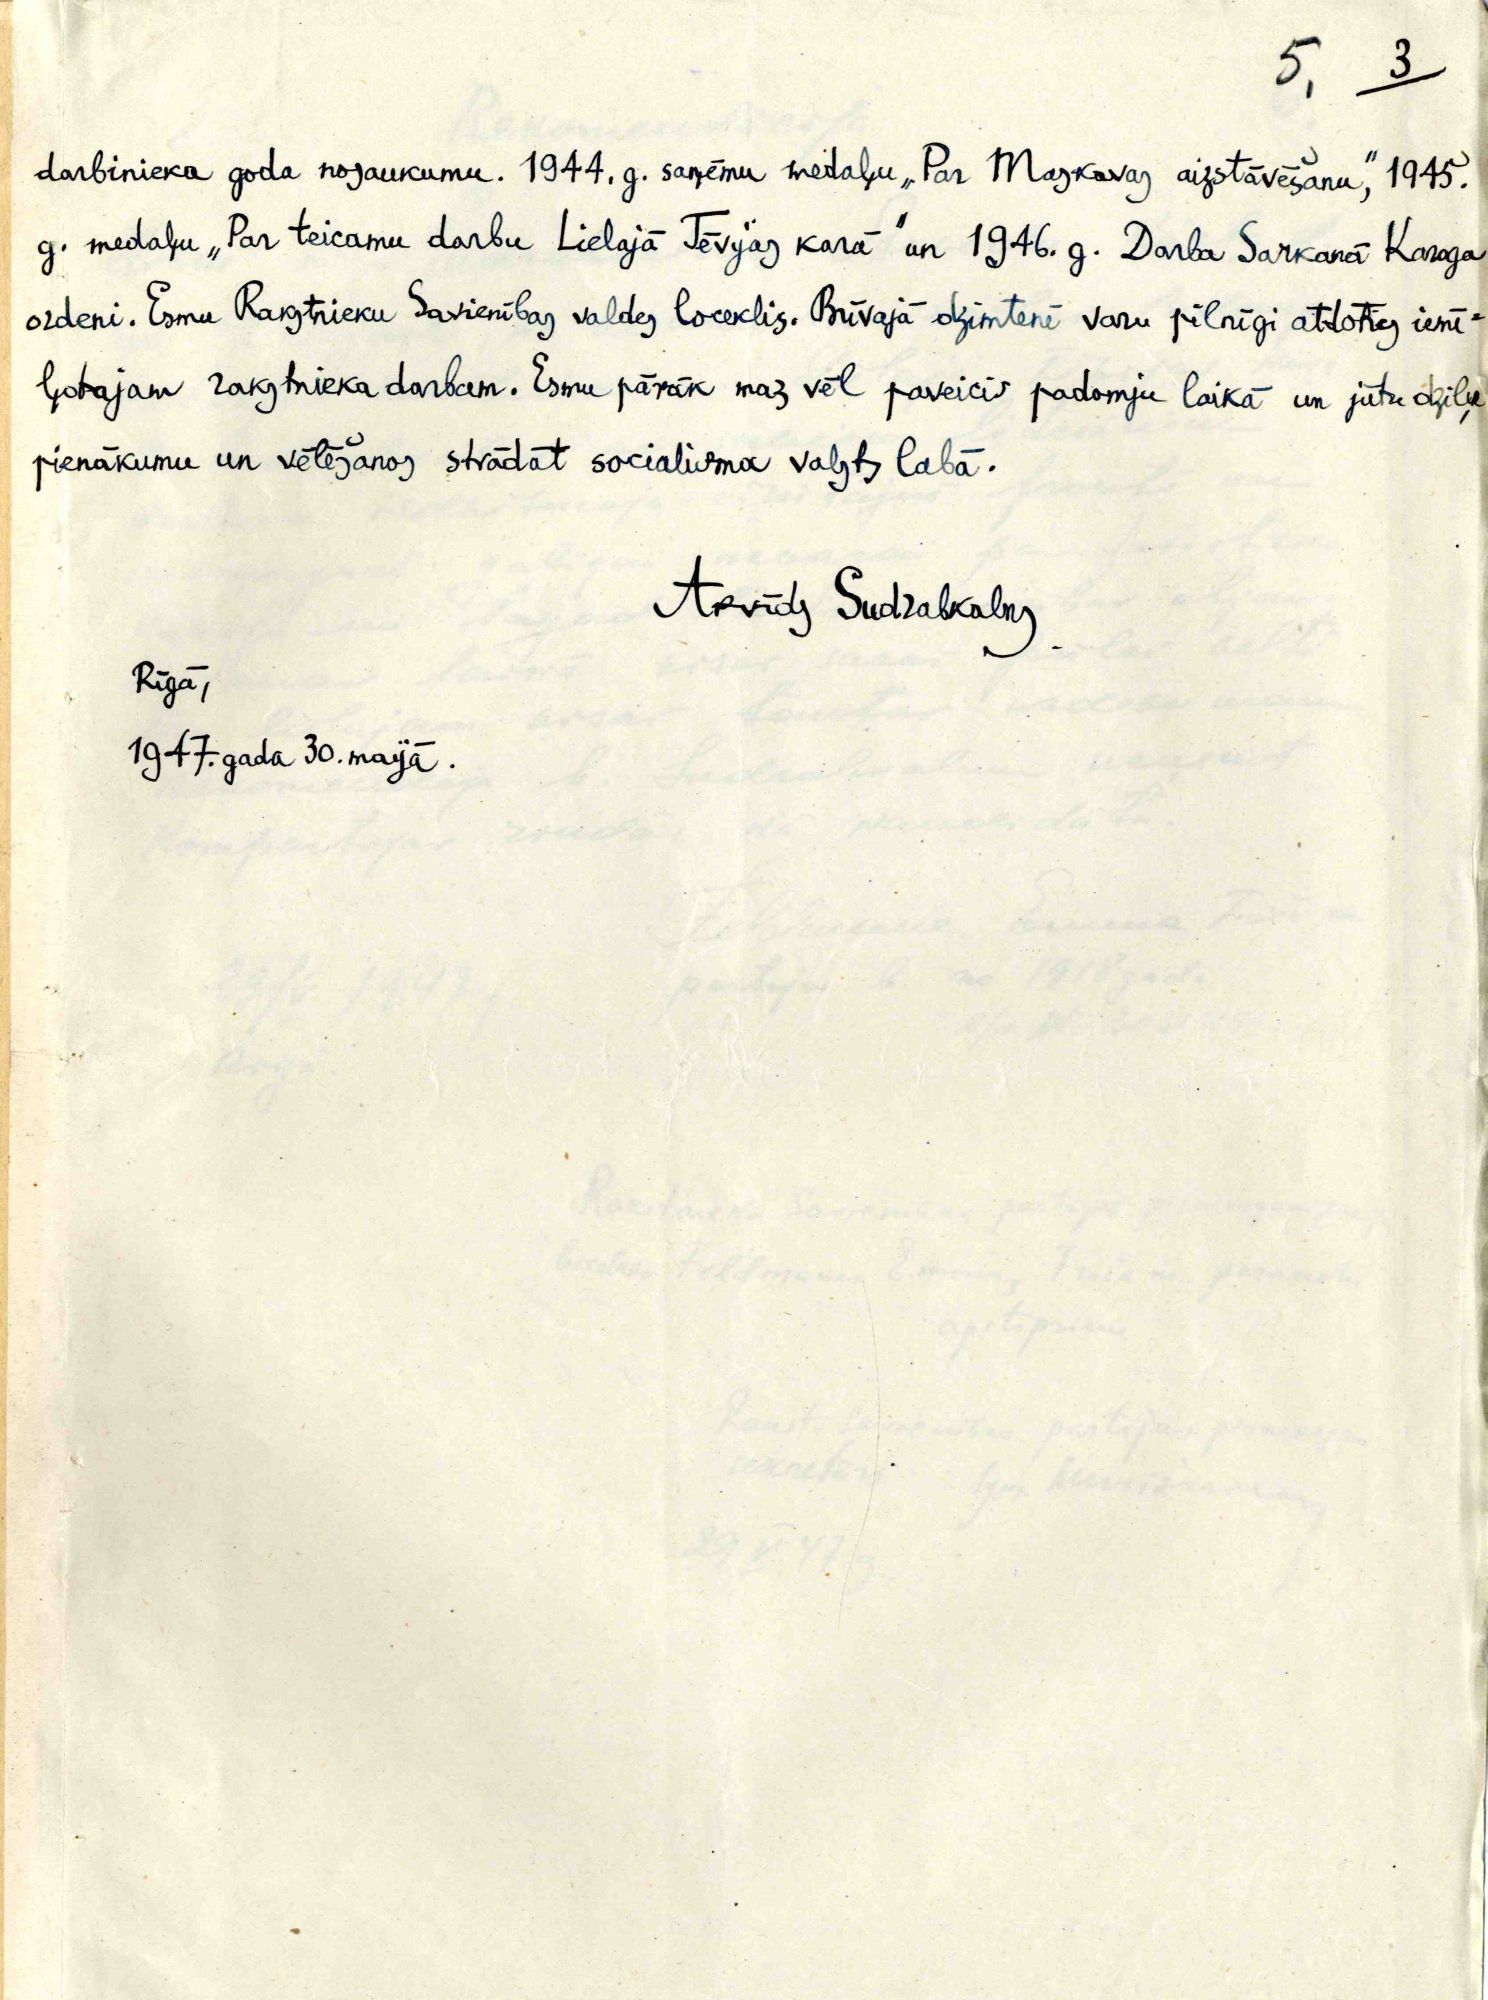 5, 3
darbinieka goda nosaukumu. 1944. g. saņēmu medaļu „Par Maskavas aizstāvēšanu”, 1945.
g. medaļu „Par teicamu darbu Lielajā Tēvijas karā” un 1946. g. Darba Sarkanā Karoga
ordeni. Esmu Rakstnieku Savienības valdes loceklis. Brīvajā dzimtenē varu pilnīgi atdoties iemī-
ļotajam rakstnieka darbam. Esmu pārāk maz vēl paveicis padomju laikā un jūtu dziļu
pienākumu un vēlēšanos strādāt socialisma valsts labā.
Arvīds Sudrabkalns
Rīgā,
1947. gada 30. maijā.